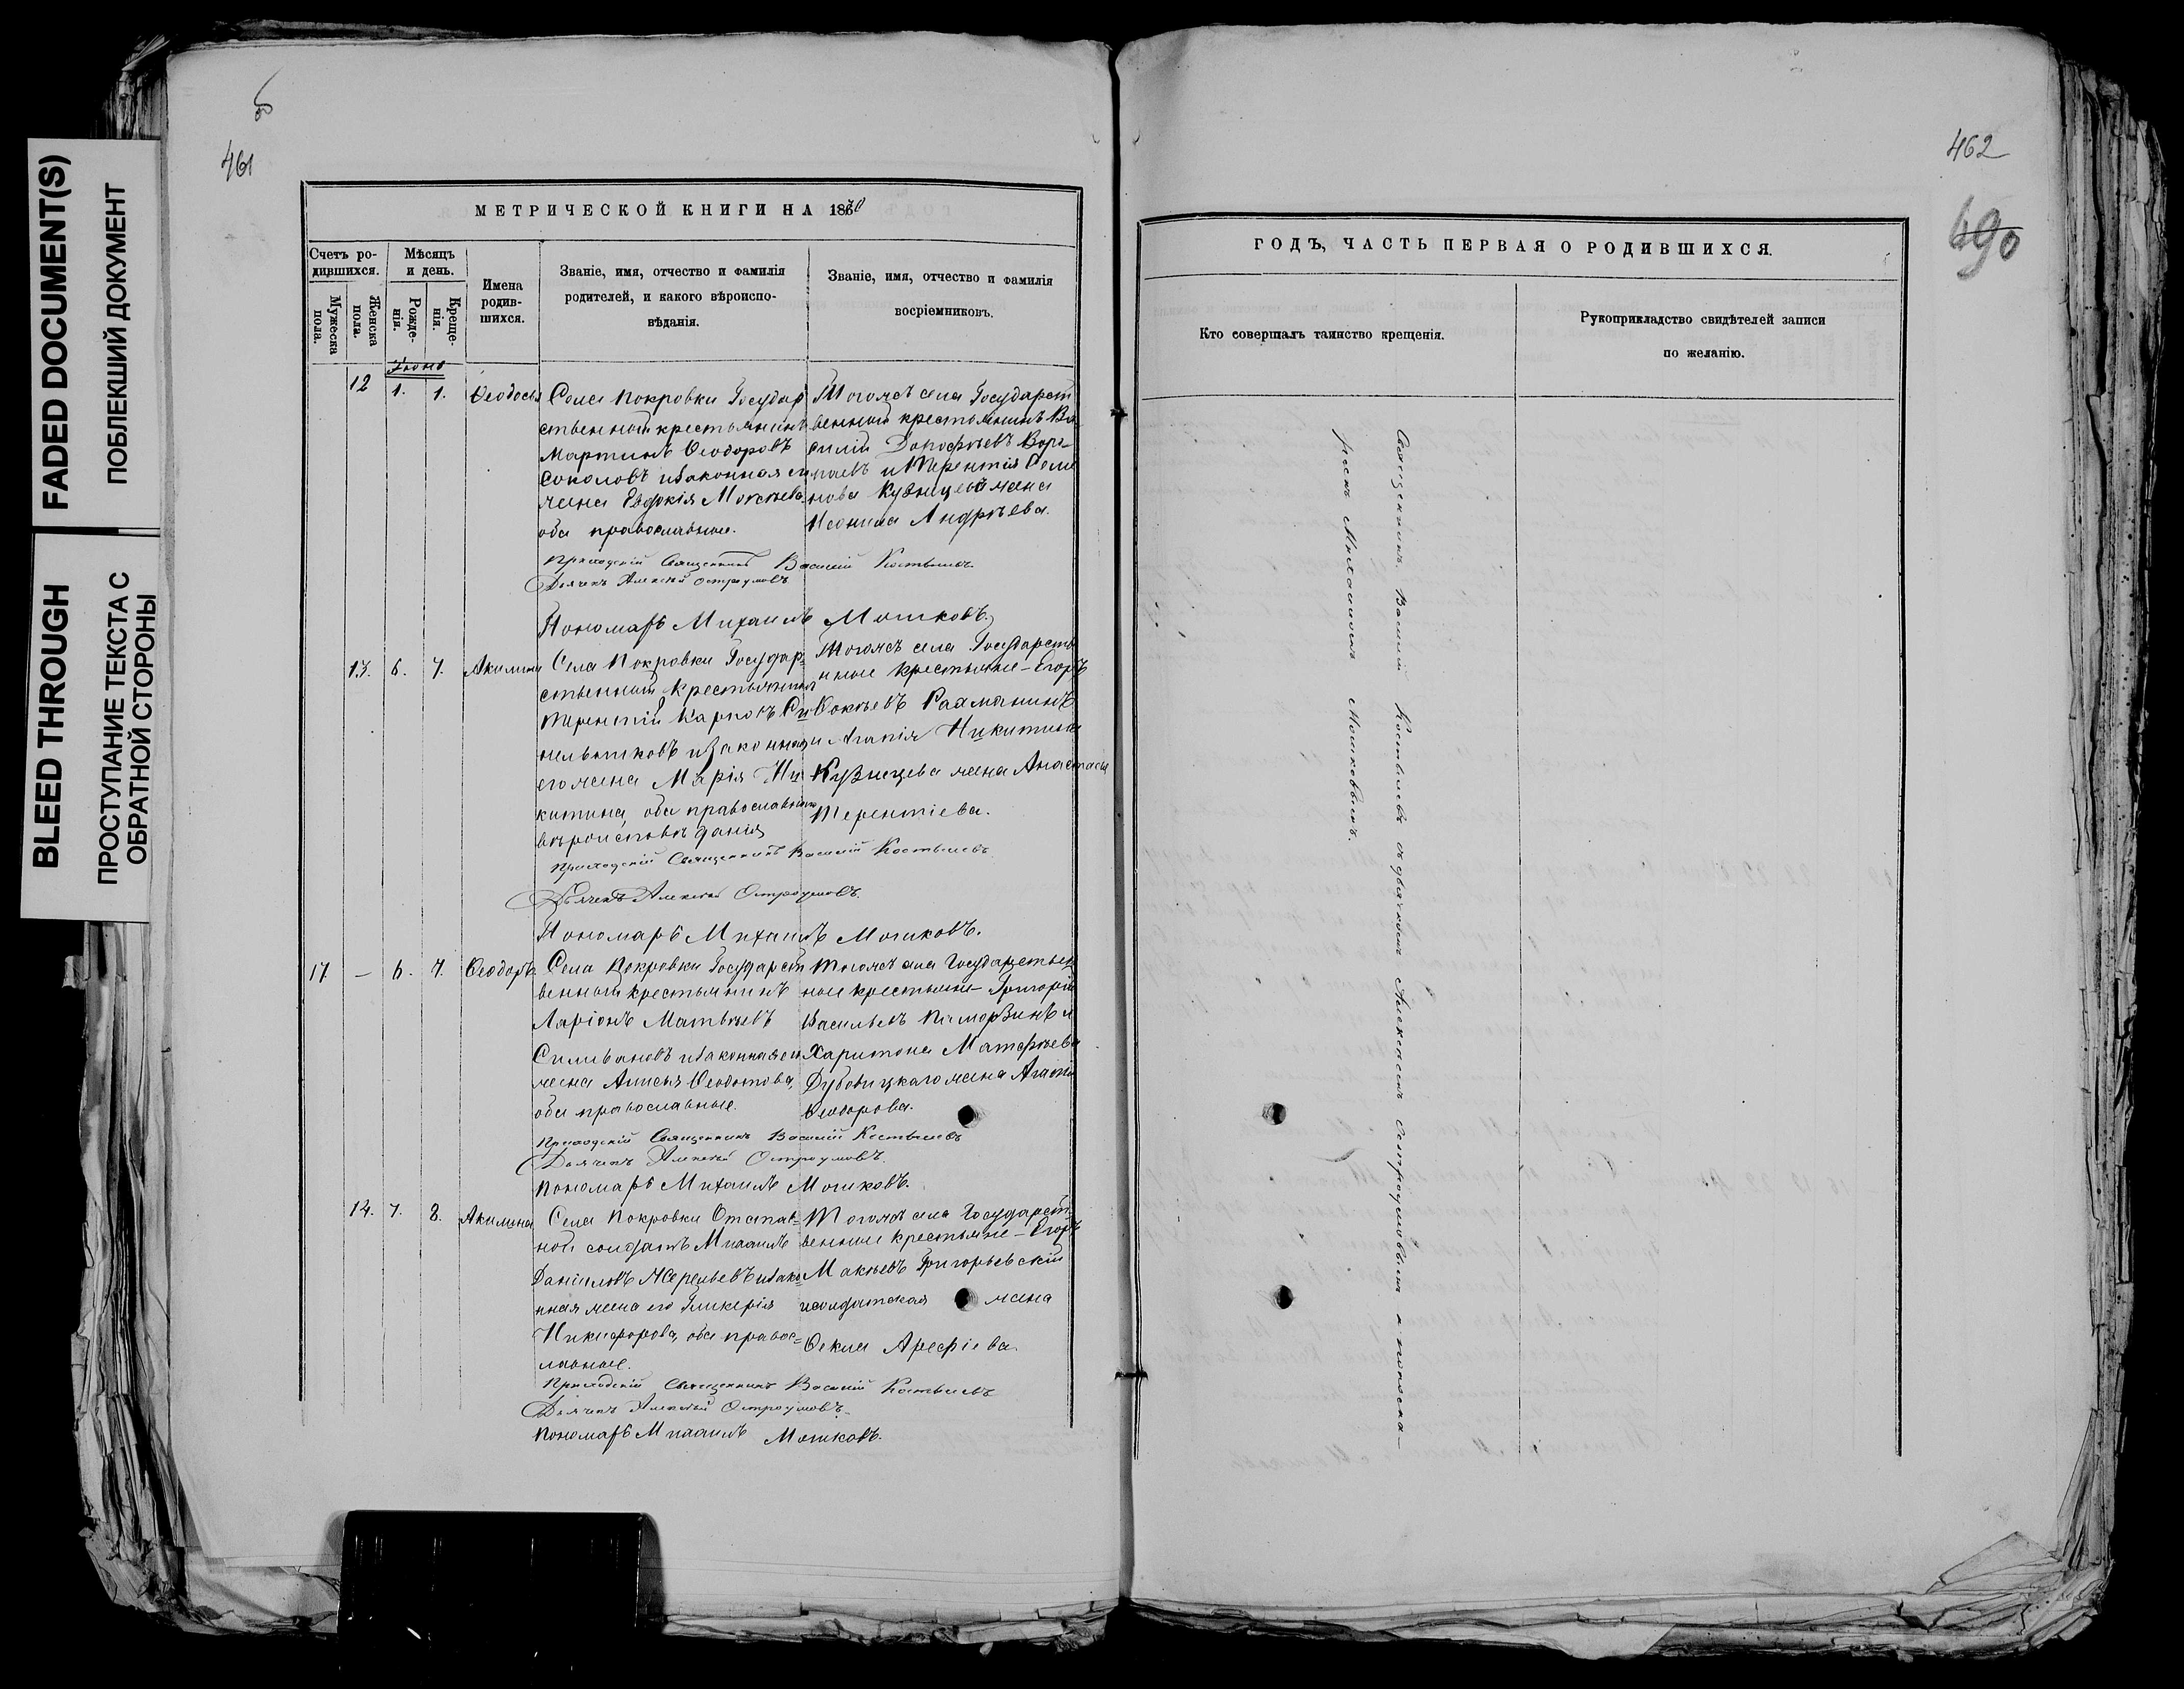 FADED DOCUMENT(S)
ПОБЛЕКШИЙ ДОКУМЕНТ
BLEED THROUGH
ПРОСТУПАНИЕ ТЕКСТА С
ОБРАТНОЙ СТОРОНЫ
461
МЕТРИЧЕСКОЙ КНИГИ НА 1870
Счетъ ро-
дившихся.
Мужеска
пола.
Женска
пола.
Мѣсяцъ
и день.
Рожде-
нія.
Креще-
нія.
Имена
родив-
шихся.
Званіе, имя, отчество и фамилія
родителей, и какого вѣроиспо-
вѣданія.
Званіе, имя, отчество и фамилія
воспріемниковъ.
12
1.
1.
Ѳеодосія
Села Покровки Государ
ственный крестьянинъ
Мартинъ Ѳеодоровъ
Соколовъ и законная ег
жена Евдокія Моисѣева,
оба православные.
Тогожъ села Государст
венный крестьянинъ Ва-
силій Дорофѣевъ
и Терентія Семе
нова Кузнецова жена
Неонила Андрѣева.
Приходскій Священникъ Василій Костылевъ.
Дьячекъ Алексѣй Остроумовъ
Пономарь Михаилъ Мошковъ.
13.
6.
7.
Акилина
Села Покровки Государ-
ственный крестьянинъ
Терентій Карповъ Си
нельниковъ и законная
его жена Марія Ни
китина, оба православнаго
вѣроисповѣданія
Тогожъ села Государстве
нные крестьяне - Егоръ
Фокѣевъ Рахманинъ
и Агапія Никитина
Кузнецова жена Анастасія
Терентіева.
Приходскій Священникъ Василій Костылевъ
Дьячекъ Алексѣй Остроумовъ.
Пономарь Михаилъ Мошковъ.
17
—
6.
7.
Ѳеодоръ
Села Покровки Государст
венный крестьянинъ
Ларіонъ Матвѣевъ
Сильвановъ и законная ег
жена Анисья Ѳеодотова,
оба православные.
Тогожъ села Государствен
ные крестьяне - Григорій
Васильевъ Паморзинъ и
Харитона Матфѣева
Дубовицкаго жена Агафія
Ѳеодорова.
Приходскій Священникъ Василій Костылевъ
Дьячекъ Алексѣй Остроумовъ.
Пономарь Михаилъ Мошковъ.
14.
7.
8.
Акилина
Села Покровки Отстав-
ной солдатъ Михаилъ
Даніиловъ и зако
нная жена его Гликерія
Никифорова, оба правос=
лавные.
Тогожъ села Государст-
венные крестьяне - Егоръ
Макѣевъ Григорьевскій
и солдатская жена
Ѳекла Арефіева.
Приходскій Священникъ Василій Костылевъ
Дьячекъ Алексѣй Остроумовъ.
Пономарь Михаилъ Мошковъ.
462
690
ГОДЪ, ЧАСТЬ ПЕРВАЯ О РОДИВШИХСЯ.
Кто совершалъ таинство крещенія.
Рукоприкладство свидѣтелей записи
по желанію.
Священникъ Василій Костылевъ съ дьячкомъ Алексѣемъ Остроумовымъ и понома-
ремъ Михаиломъ Мошковымъ.